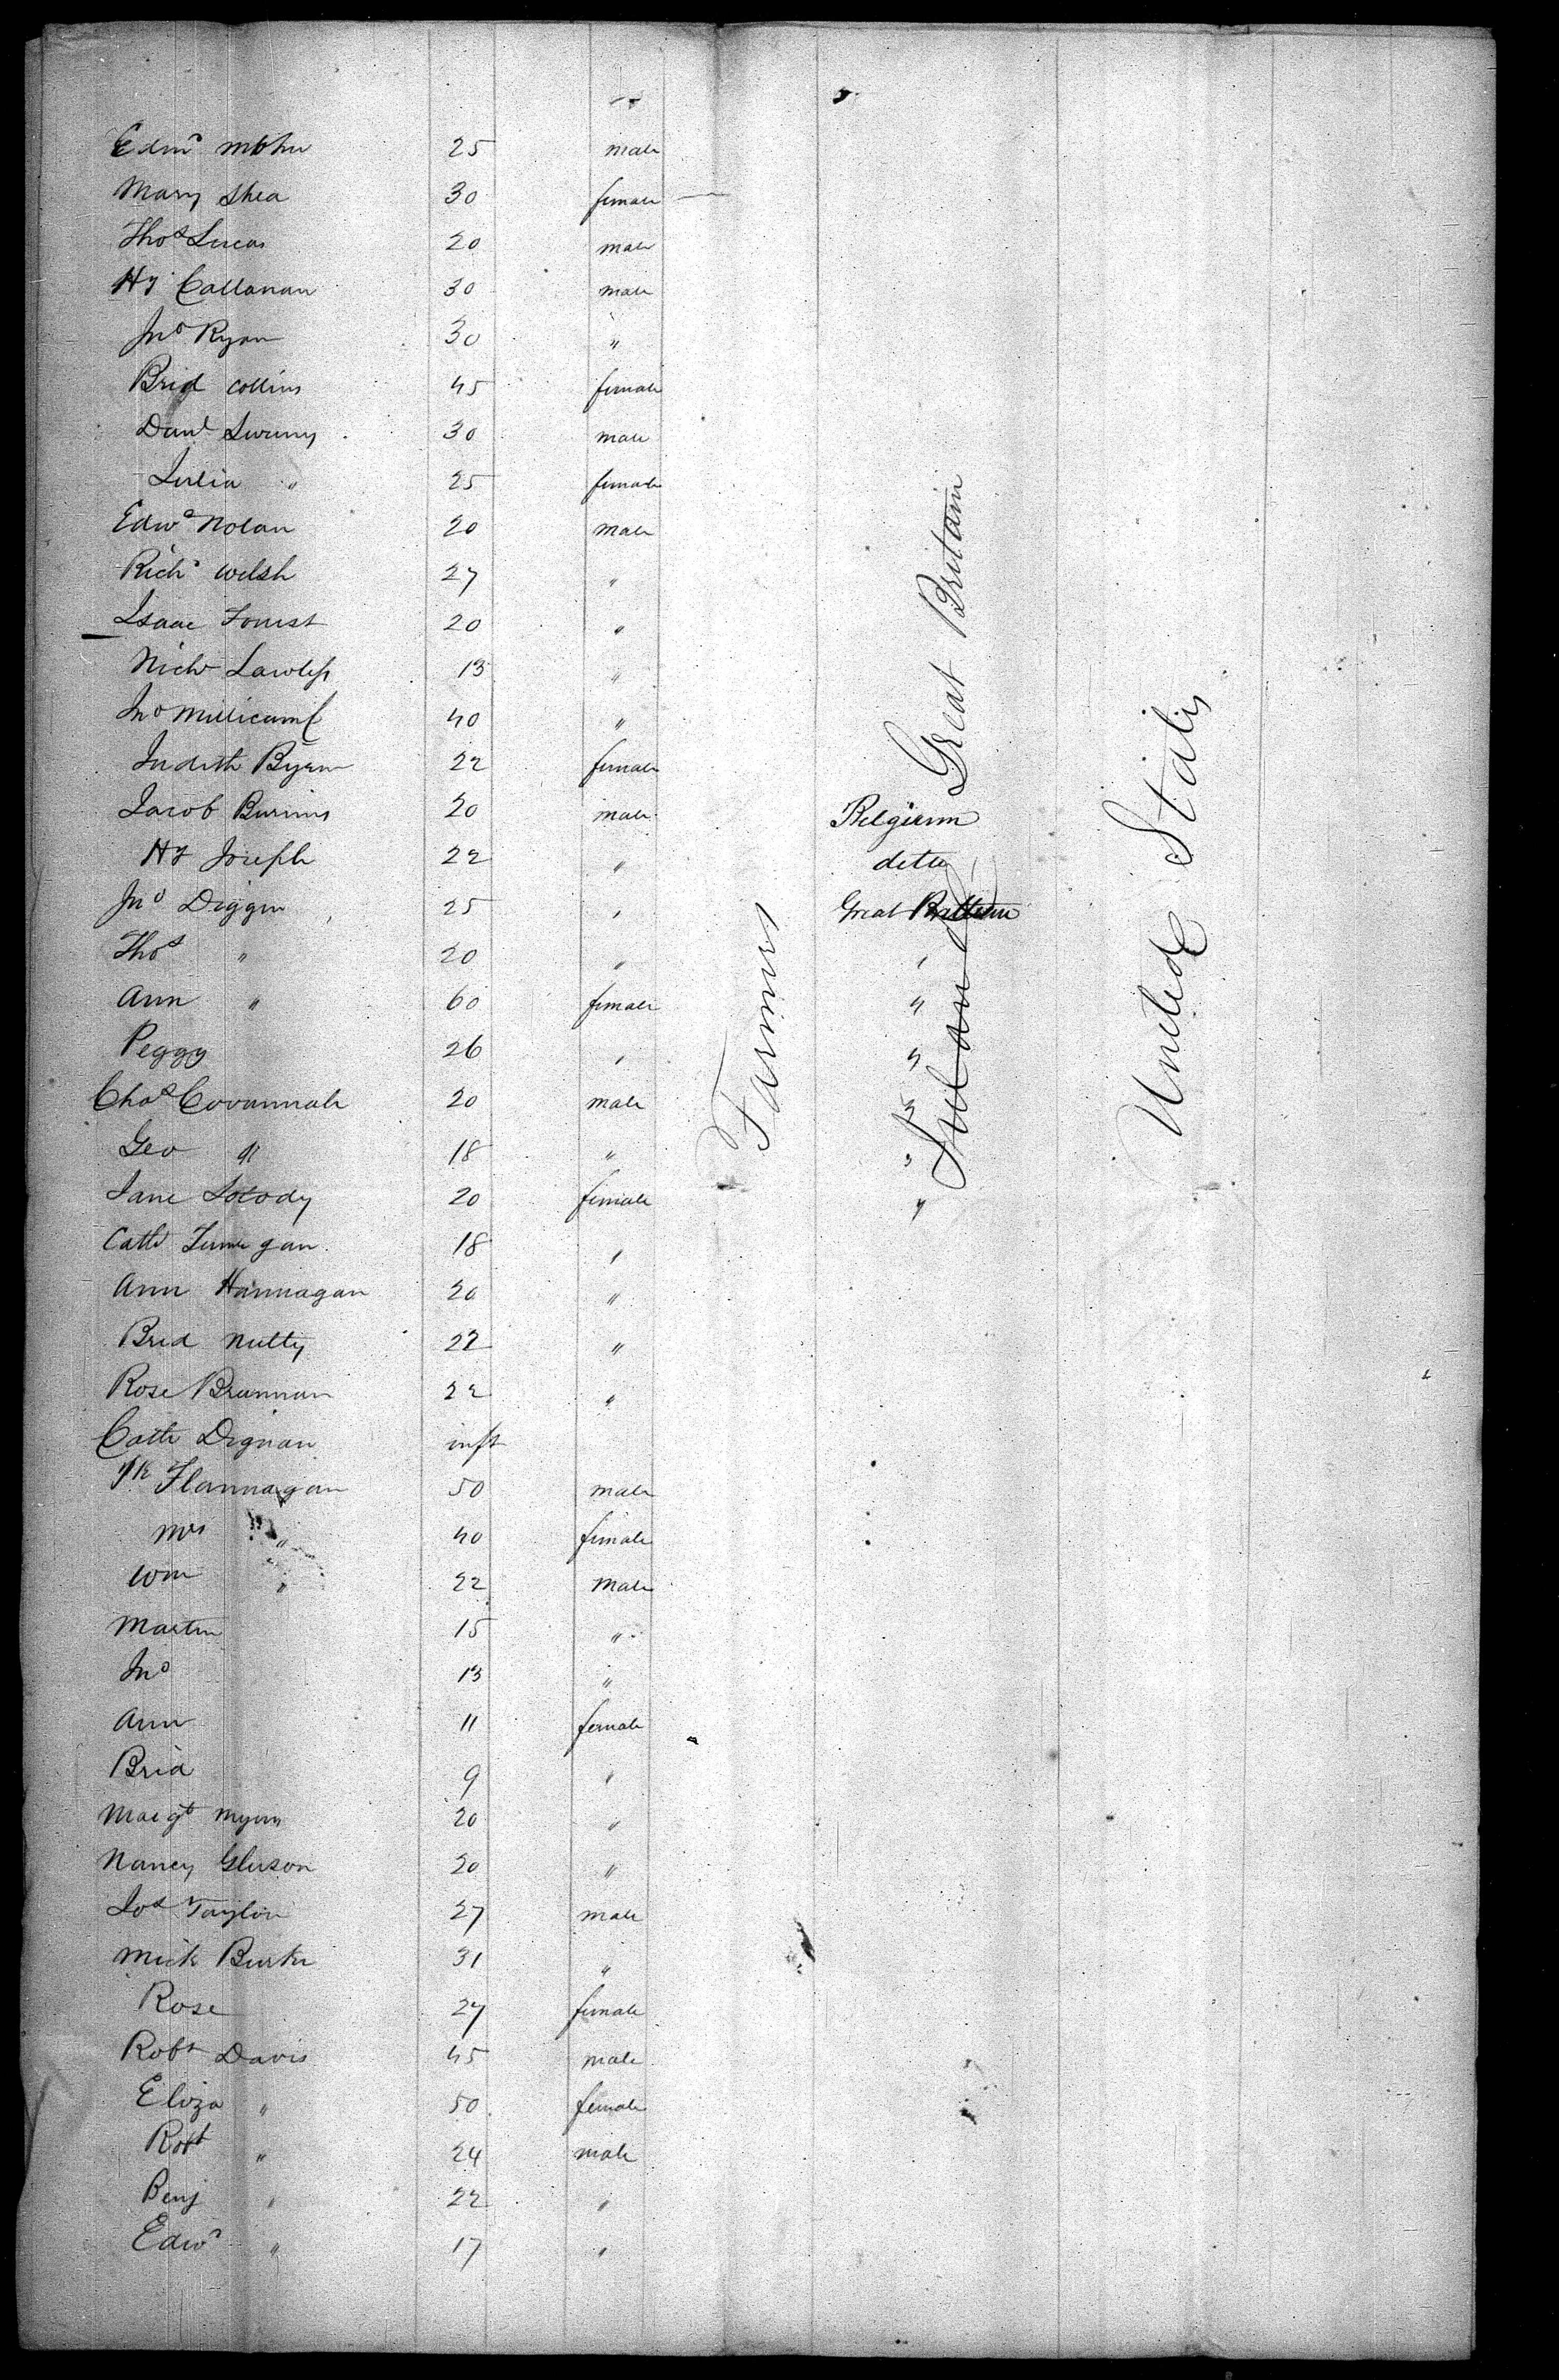 Edwd 25 male
Mary Shea 30 female
Thos Lucas 20 male
Hy Callanan 30 male
Jno Ryan 30 "
Brid Collins 45 female
Danl Sweeny 30 male
Julia " 25 female
Edwd Nolan 20 male
Richd Welsh 27 "
Isaac Forrest 20 "
Nichs Lawless 13 "
Jno 40 "
Judith Byrn 22 female
Jacob 20 male Belgium
Hy Joseph 22 " ditto
Jno Diggin 25 " Great Brittain
Thos " 20 " "
Ann " 60 female "
Peggy 26 " "
Chas Cavannah 20 male "
Geo " 18 " "
Jane 20 female "
Cath Finnegan 18 "
Ann Hannagan 20 "
Brid Nulty 22 "
Rose Brannan 22 "
Cath Dignan inft
Flannagan 50 male
Mrs " 40 female
Wm " 22 male
Martin 15 "
Jno 13 "
Ann 11 female
Brid 9 "
Margt Myers 20 "
Nancy Gleeson 20 "
Jos Taylor 27 male
Mick Burke 31 "
Rose 27 female
Robt Davis 45 male
Eliza " 50 female
Robt " 24 male
Benj " 22 "
Edwd " 17 "
Farmers
Great Britain
Ireland
United States